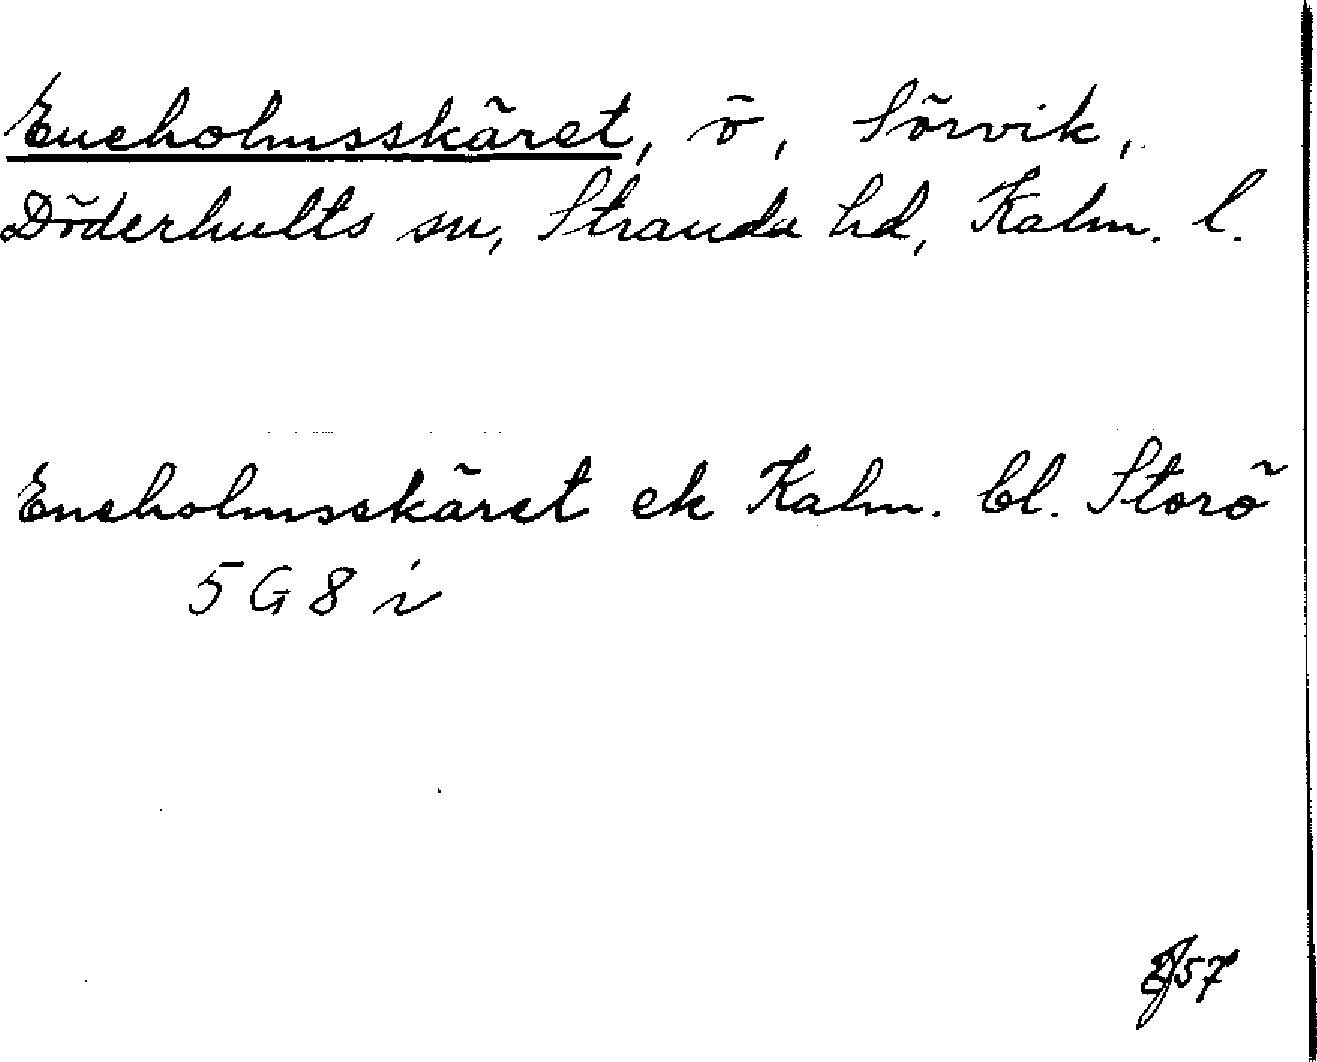 Eneholmsskäret, ö, Sörvik,
Döderhults sn, Stranda hd, Kalm. l.
Eneholmsskäret ek Kalm. bl. Storö
5 G 8 i
57